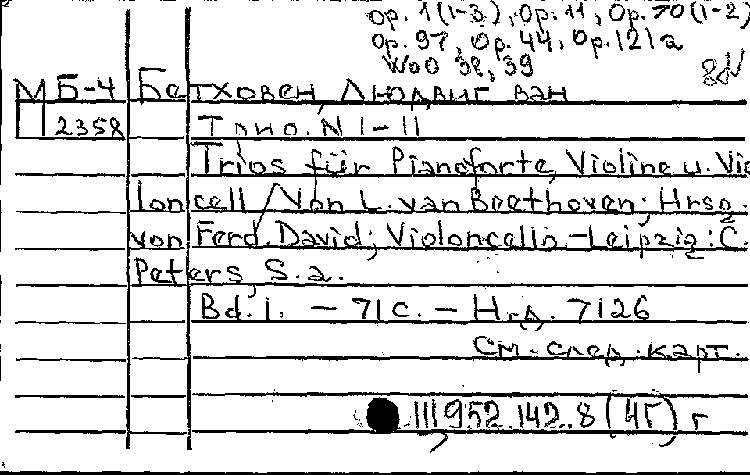 Op. 1(1-3), Op. 11, Op. 70(1-2)
Op. 97, Op. 44, Op. 121a
WoO 38, 39
М Б-4 Бетховен, Людвиг ван
П 2358 Трио. N 1-11
Trios für Pianoforte, Violine u. Vio
loncell / Von L. van Beethoven; Hrsg.
von Ferd. David; Violoncello. - Leipzig: C.
Peters, S.a.
Bd. 1. - 71 c. - Н.д. 7126
См. след. карт.
111952.142..8 (4г) г